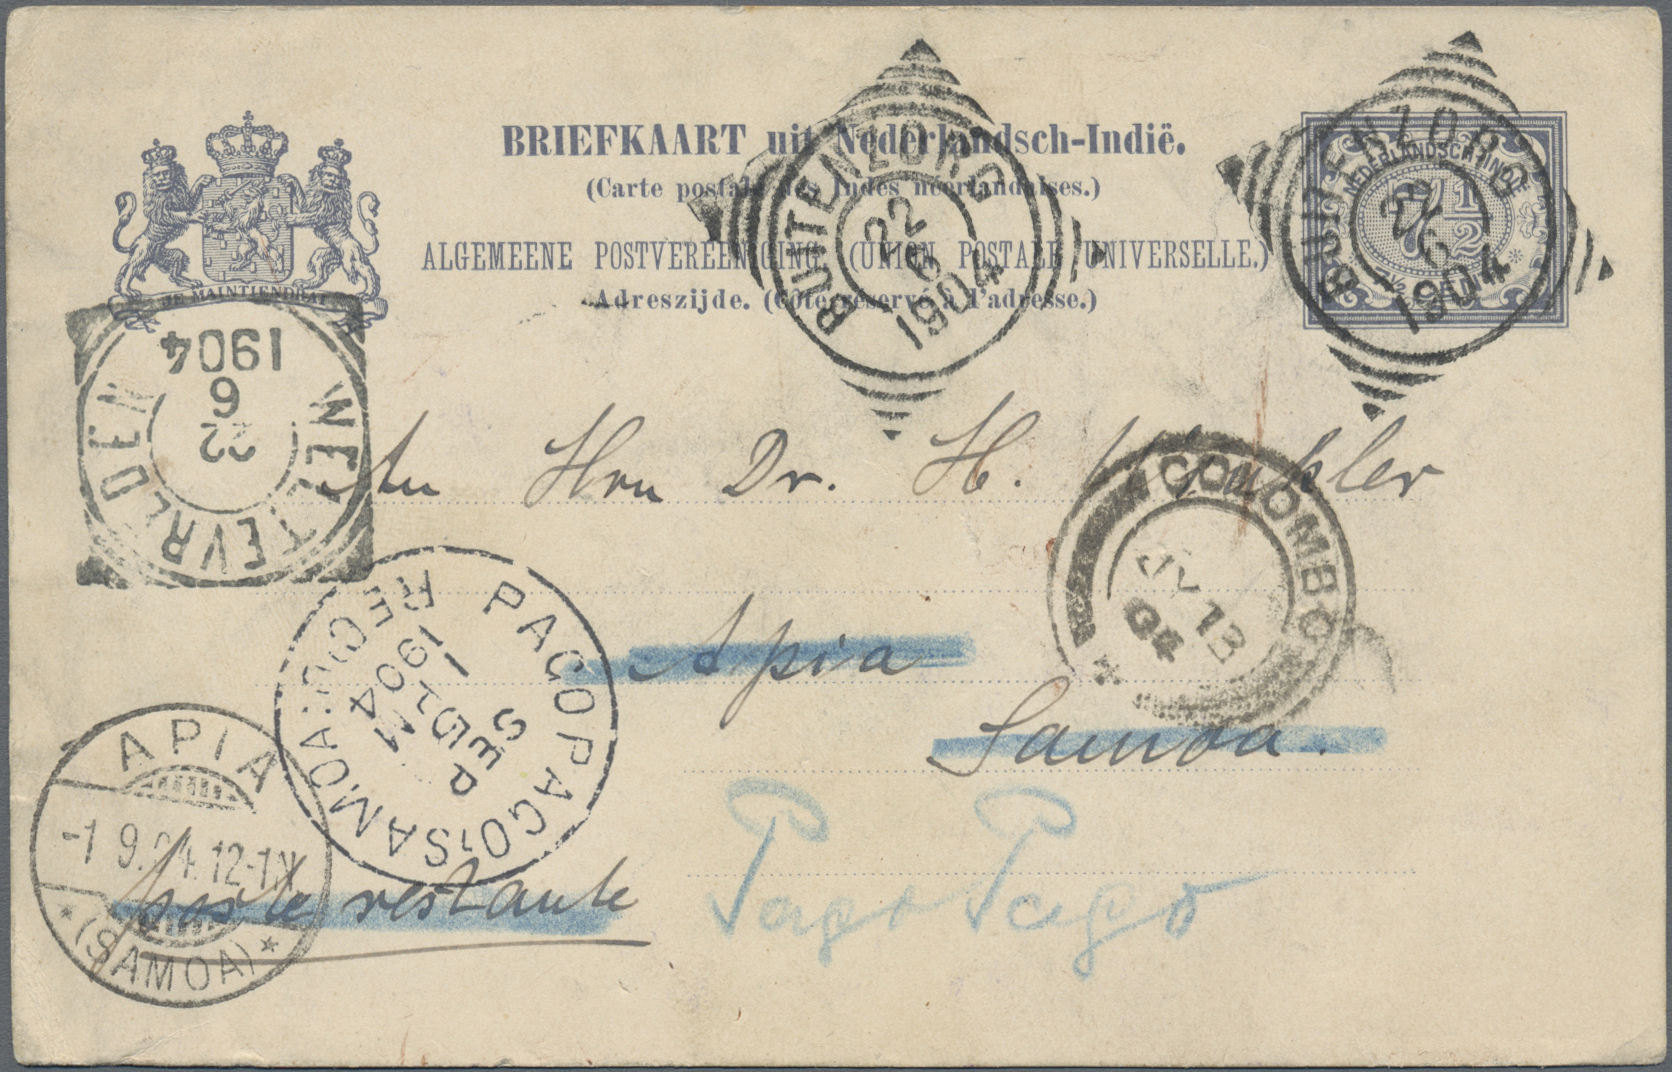 BRIEFKAART uit Nederlandsch-Indië.
(Carte postale des Indes néerlandaises.)
ALGEMEENE POSTVEREENIGING (UNION POSTALE UNIVERSELLE.)
Adreszijde. (Côté réservé à l'adresse.)
JE MAINTIENDRAI
NEDERLANDSCH-INDIË
7½
BUITENZORG
22
6
1904
BUITENZORG
22
6
1904
WELTEVREDEN
22
6
1904
Hrn Dr. H.
COLOMBO
JY 13
04
Apia
Samoa.
PAGO PAGO, SAMOA.
REC'D.
SEP
15
1904
Pago Pago
poste restante
APIA
-1 9.04. 12-1N
* (SAMOA) *